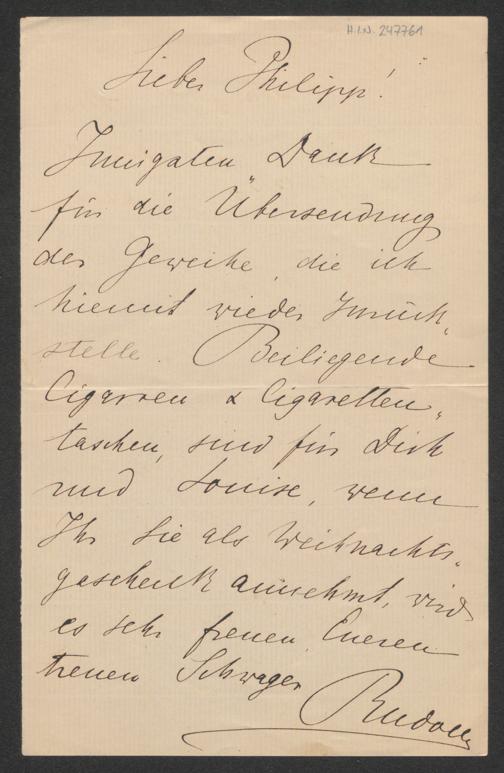 H.I.N. 247761
Lieber Philipp!
Innigsten Dank
für die Übersendung
der Geweihe, die ich
hiemit wieder zurück-
stelle. Beiliegende
Cigarren & Cigaretten-
taschen, sind für Dich
und Louise, wenn
Ihr Sie als Weihnachts-
geschenk annehmt, wird
es sehr freuen Eueren
treuen Schwager
Rudolf